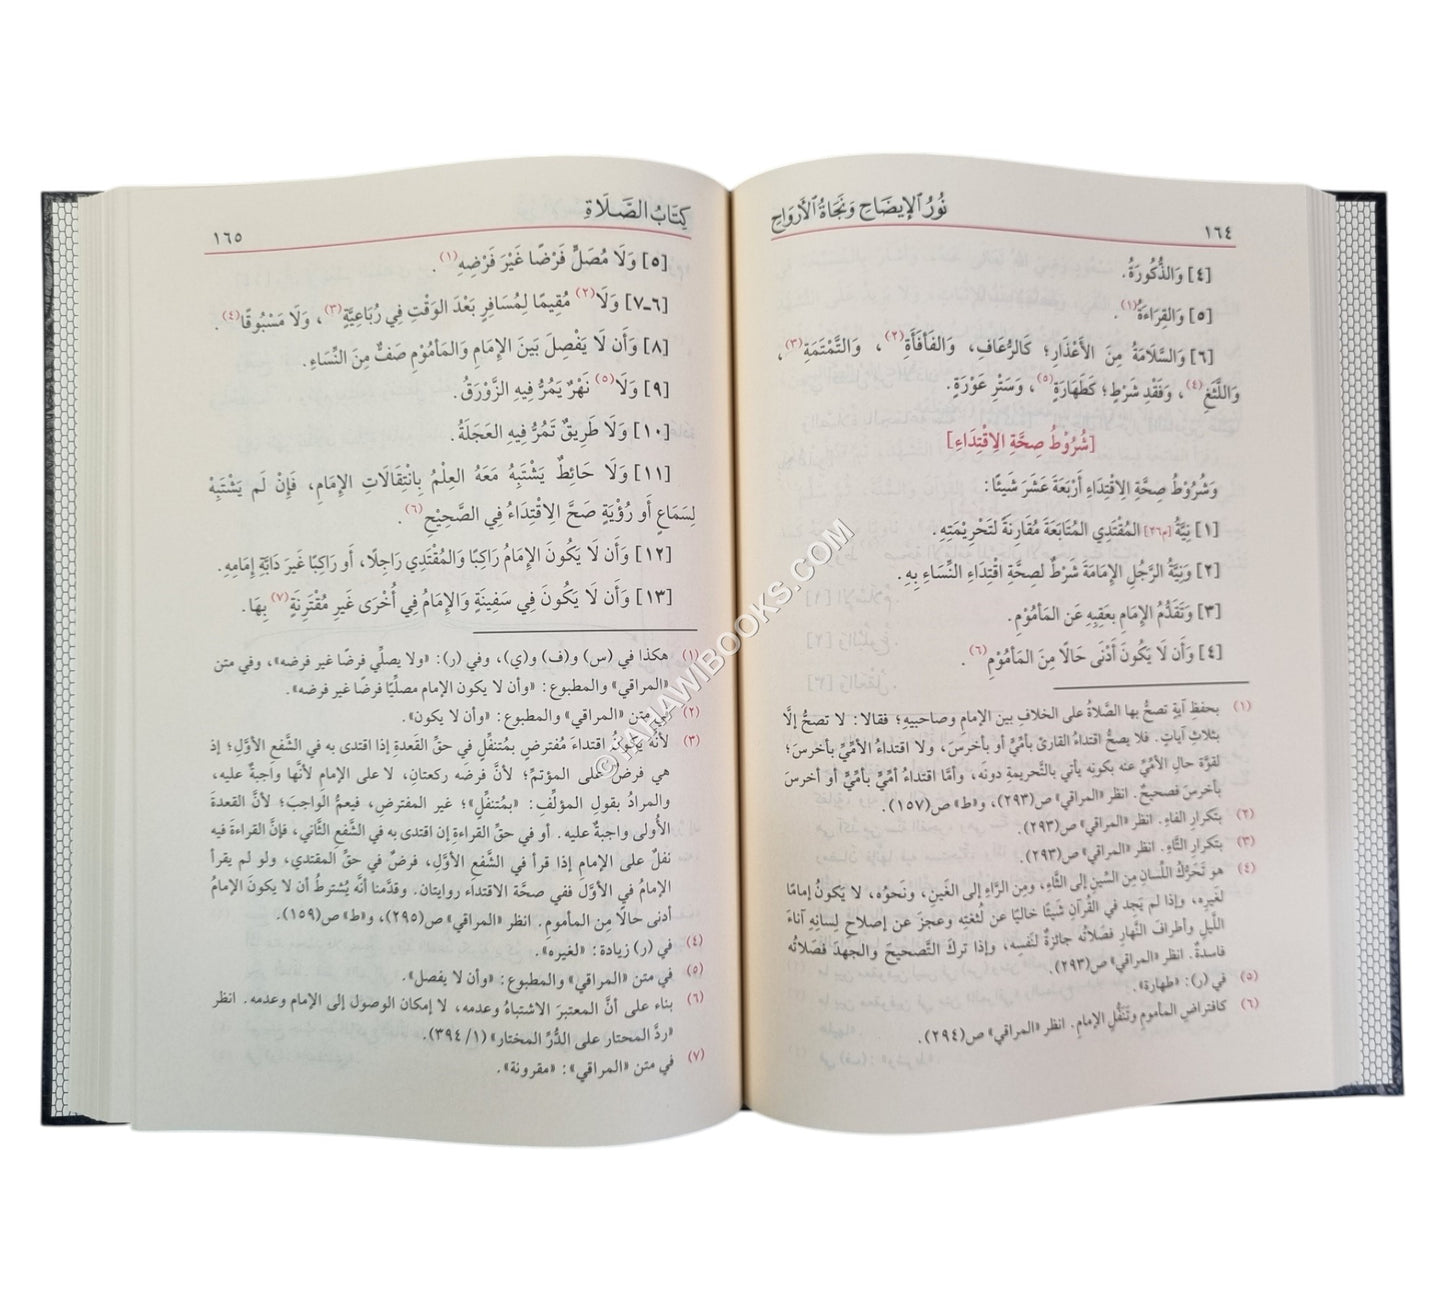 نُورُ الإِيضَاحِ وَنَجَاةُ الأَرْوَاحِ
١٦٤
[٤] وَالذُّكُورَةُ.
[٥] وَالقِرَاءَةُ(١).
[٦] وَالسَّلَامَةُ مِنَ الأَعْذَارِ؛ كَالرُّعَافِ، وَالفَأْفَأَةِ(٢)، وَالتَّمْتَمَةِ(٣)،
وَاللَّثَغِ(٤)، وَفَقْدِ شَرْطٍ؛ كَطَهَارَةٍ(٥)، وَسَتْرِ عَوْرَةٍ.
[شُرُوْطُ صِحَّةِ الِاقْتِدَاءِ]
وَشُرُوْطُ صِحَّةِ الِاقْتِدَاءِ أَرْبَعَةَ عَشَرَ شَيئًا:
[١] نِيَّةُ [م٣٦] المُقْتَدِي المُتَابَعَةَ مُقَارِنَةً لتَحْرِيْمَتِهِ.
[٢] وَنِيَّةُ الرَّجُلِ الإِمَامَةَ شَرْطٌ لصِحَّةِ اقْتِدَاءِ النِّسَاءِ بِهِ.
[٣] وَتَقَدُّمُ الإِمَامِ بِعَقِبِهِ عَن المَأمُوْمِ.
[٤] وَأَن لَا يَكُونَ أَدْنَى حَالًا مِنَ المَأمُوْمِ(٦).
(١) بحفظِ آيةٍ تصحُّ بها الصَّلاةُ على الخلاف بين الإمامِ وصاحبيهِ؛ فقالا: لا تصحُّ إلَّا
بثلاثِ آياتٍ. فلا يصحُّ اقتداءُ القارئ بأمِّيٍّ أو بأخرسَ، ولا اقتداءُ الأمِّيِّ بأخرسَ؛
لقوَّة حالِ الأمِّيِّ عنه بكونِه يأتي بالتَّحريمةِ دونَه، وأمَّا اقتداءُ أمِّيٍّ بأمِّيٍّ أو أخرسَ
بأخرسَ فصحيحٌ. انظر «المراقي» ص(٢٩٣)، و«ط» ص(١٥٧).
(٢) بتكرارِ الفاءِ. انظر «المراقي» ص(٢٩٣).
(٣) بتكرارِ التَّاءِ. انظر «المراقي» ص(٢٩٣).
(٤) هو تَحَرُّكُ اللِّسانِ مِن السِّينِ إلى الثَّاءِ، ومِن الرَّاءِ إلى الغَينِ، ونَحوُه، لا يَكونُ إمامًا
لغَيرِه، وإذا لم يَجِد في القُرآنِ شَيئًا خاليًا عن لُثغتِهِ وعجزَ عن إصلاحِ لِسانِهِ آناءَ
اللَّيلِ وأطرافَ النَّهارِ فصَلاتُه جائزةٌ لنَفسِه، وإذا تركَ التَّصحيحَ والجهدَ فصَلاتُه
فاسدةٌ. انظر «المراقي» ص(٢٩٣).
(٥) في (ر): «طهارة».
(٦) كافتراضِ المأمومِ وتَنَفُّلِ الإمامِ. انظر «المراقي» ص(٢٩٤).
كِتَابُ الصَّلَاةِ
١٦٥
[٥] وَلَا مُصَلٍّ فَرْضًا غَيْرَ فَرْضِهِ(١).
[٦-٧] وَلَا(٢) مُقِيمًا لِمُسَافِرٍ بَعْدَ الوَقْتِ فِي رُبَاعِيَّةٍ(٣)، وَلَا مَسْبُوقًا(٤).
[٨] وَأَن لَا يَفْصِلَ بَينَ الإِمَامِ وَالمَأمُوْمِ صَفٌّ مِنَ النِّسَاءِ.
[٩] وَلَا(٥) نَهْرٌ يَمُرُّ فِيهِ الزَّوْرَقُ.
[١٠] وَلَا طَرِيقٌ تَمُرُّ فِيهِ العَجَلَةُ.
[١١] وَلَا حَائِطٌ يَشْتَبِهُ مَعَهُ العِلْمُ بِانْتِقَالَاتِ الإِمَامِ، فَإِنْ لَم يَشْتَبِهْ
لِسَمَاعٍ أَو رُؤْيَةٍ صَحَّ الِاقْتِدَاءُ فِي الصَّحِيْحِ(٦).
[١٢] وَأَن لَا يَكُونَ الإِمَامُ رَاكِبًا وَالمُقْتَدِي رَاجِلًا، أَو رَاكِبًا غَيرَ دَابَّةِ إِمَامِهِ.
[١٣] وَأَن لَا يَكُونَ فِي سَفِينَةٍ وَالإِمَامُ فِي أُخْرَى غَيرِ مُقْتَرِنَةٍ(٧) بِهَا.
(١) هكذا في (س) و(ف) و(ي)، وفي (ر): «ولا يصلِّي فرضًا غير فرضه»، وفي متن
«المراقي» والمطبوع: «وأن لا يكون الإمام مصلِّيًا فرضًا غير فرضه».
(٢) في متن «المراقي» والمطبوع: «وأن لا يكون».
(٣) لأنَّه يكونُ اقتداءَ مُفترضٍ بمُتنفِّلٍ في حقِّ القَعدةِ إذا اقتدى به في الشَّفعِ الأوَّلِ؛ إذ
هي فرضٌ على المؤتمِّ؛ لأنَّ فرضَه ركعتانِ، لا على الإمامِ لأنَّها واجبةٌ عليه،
والمرادُ بقولِ المؤلِّفِ: «بمُتنفِّلٍ»؛ غير المفترضِ، فيعمُّ الواجبَ؛ لأنَّ القعدةَ
الأُولى واجبةٌ عليه. أو في حقِّ القراءةِ إن اقتدى به في الشَّفعِ الثَّاني، فإنَّ القراءةَ فيه
نفلٌ على الإمامِ إذا قرأ في الشَّفعِ الأوَّلِ، فرضٌ في حقِّ المقتدي، ولو لم يقرأ
الإمامُ في الأوَّلَ ففي صحَّة الاقتداءِ روايتان. وقدَّمنا أنَّه يُشترطُ أن لا يكونَ الإمامُ
أدنى حالًا مِن المأمومِ. انظر «المراقي» ص(٢٩٥)، و«ط» ص(١٥٩).
(٤) في (ر) زيادة: «لغيره».
(٥) في متن «المراقي» والمطبوع: «وأن لا يفصل».
(٦) بناء على أنَّ المعتبرَ الاشتباهُ وعدمه، لا إمكان الوصول إلى الإمام وعدمه. انظر
«ردَّ المحتار على الدُّرِّ المختار» (١/ ٣٩٤).
(٧) في متن «المراقي»: «مقرونة».
©TAHAWIBOOKS.COM